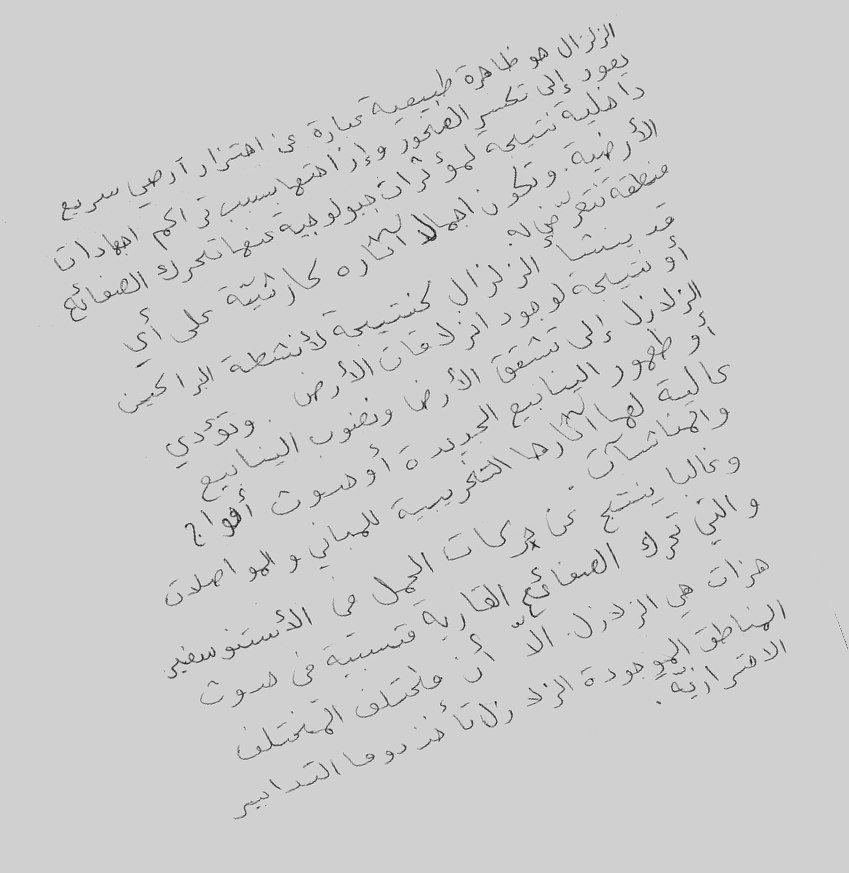 الزلزال هو ظاهرة طبيعية عبارة عن اهتزاز أرضي سريع
يعود إلى تكسر الصخور وإزاحتها بسبب تراكم اجهادات
داخلية نتيجة لمؤثرات جيولوجية عنها تحرك الصفائح
الأرضية. وتكون اجمالا آثاره كارثيّة على أي
منطقة تتعرّض له.
قد ينشأ الزلزال كنتيجة لأنشطة البراكين
أو نتيجة لوجود انزلاقات الأرض. وتؤدي
الزلازل إلى تشقق الأرض ونضوب الينابيع
أو ظهور الينابيع الجديدة أو حدوث أمواج
عالية لها آثارها التخريبية للمباني والمواصلات
والمنشآت.
وغالبا ينتج عن حركات الحمل في الأستنوسفير
والتي تحرك الصفائح القارية متسببة في حدوث
هزات هي الزلازل. الّا أن
المناطق الموجودة الزلازل تأخذ دوما التدابير
الاحترازيّة.